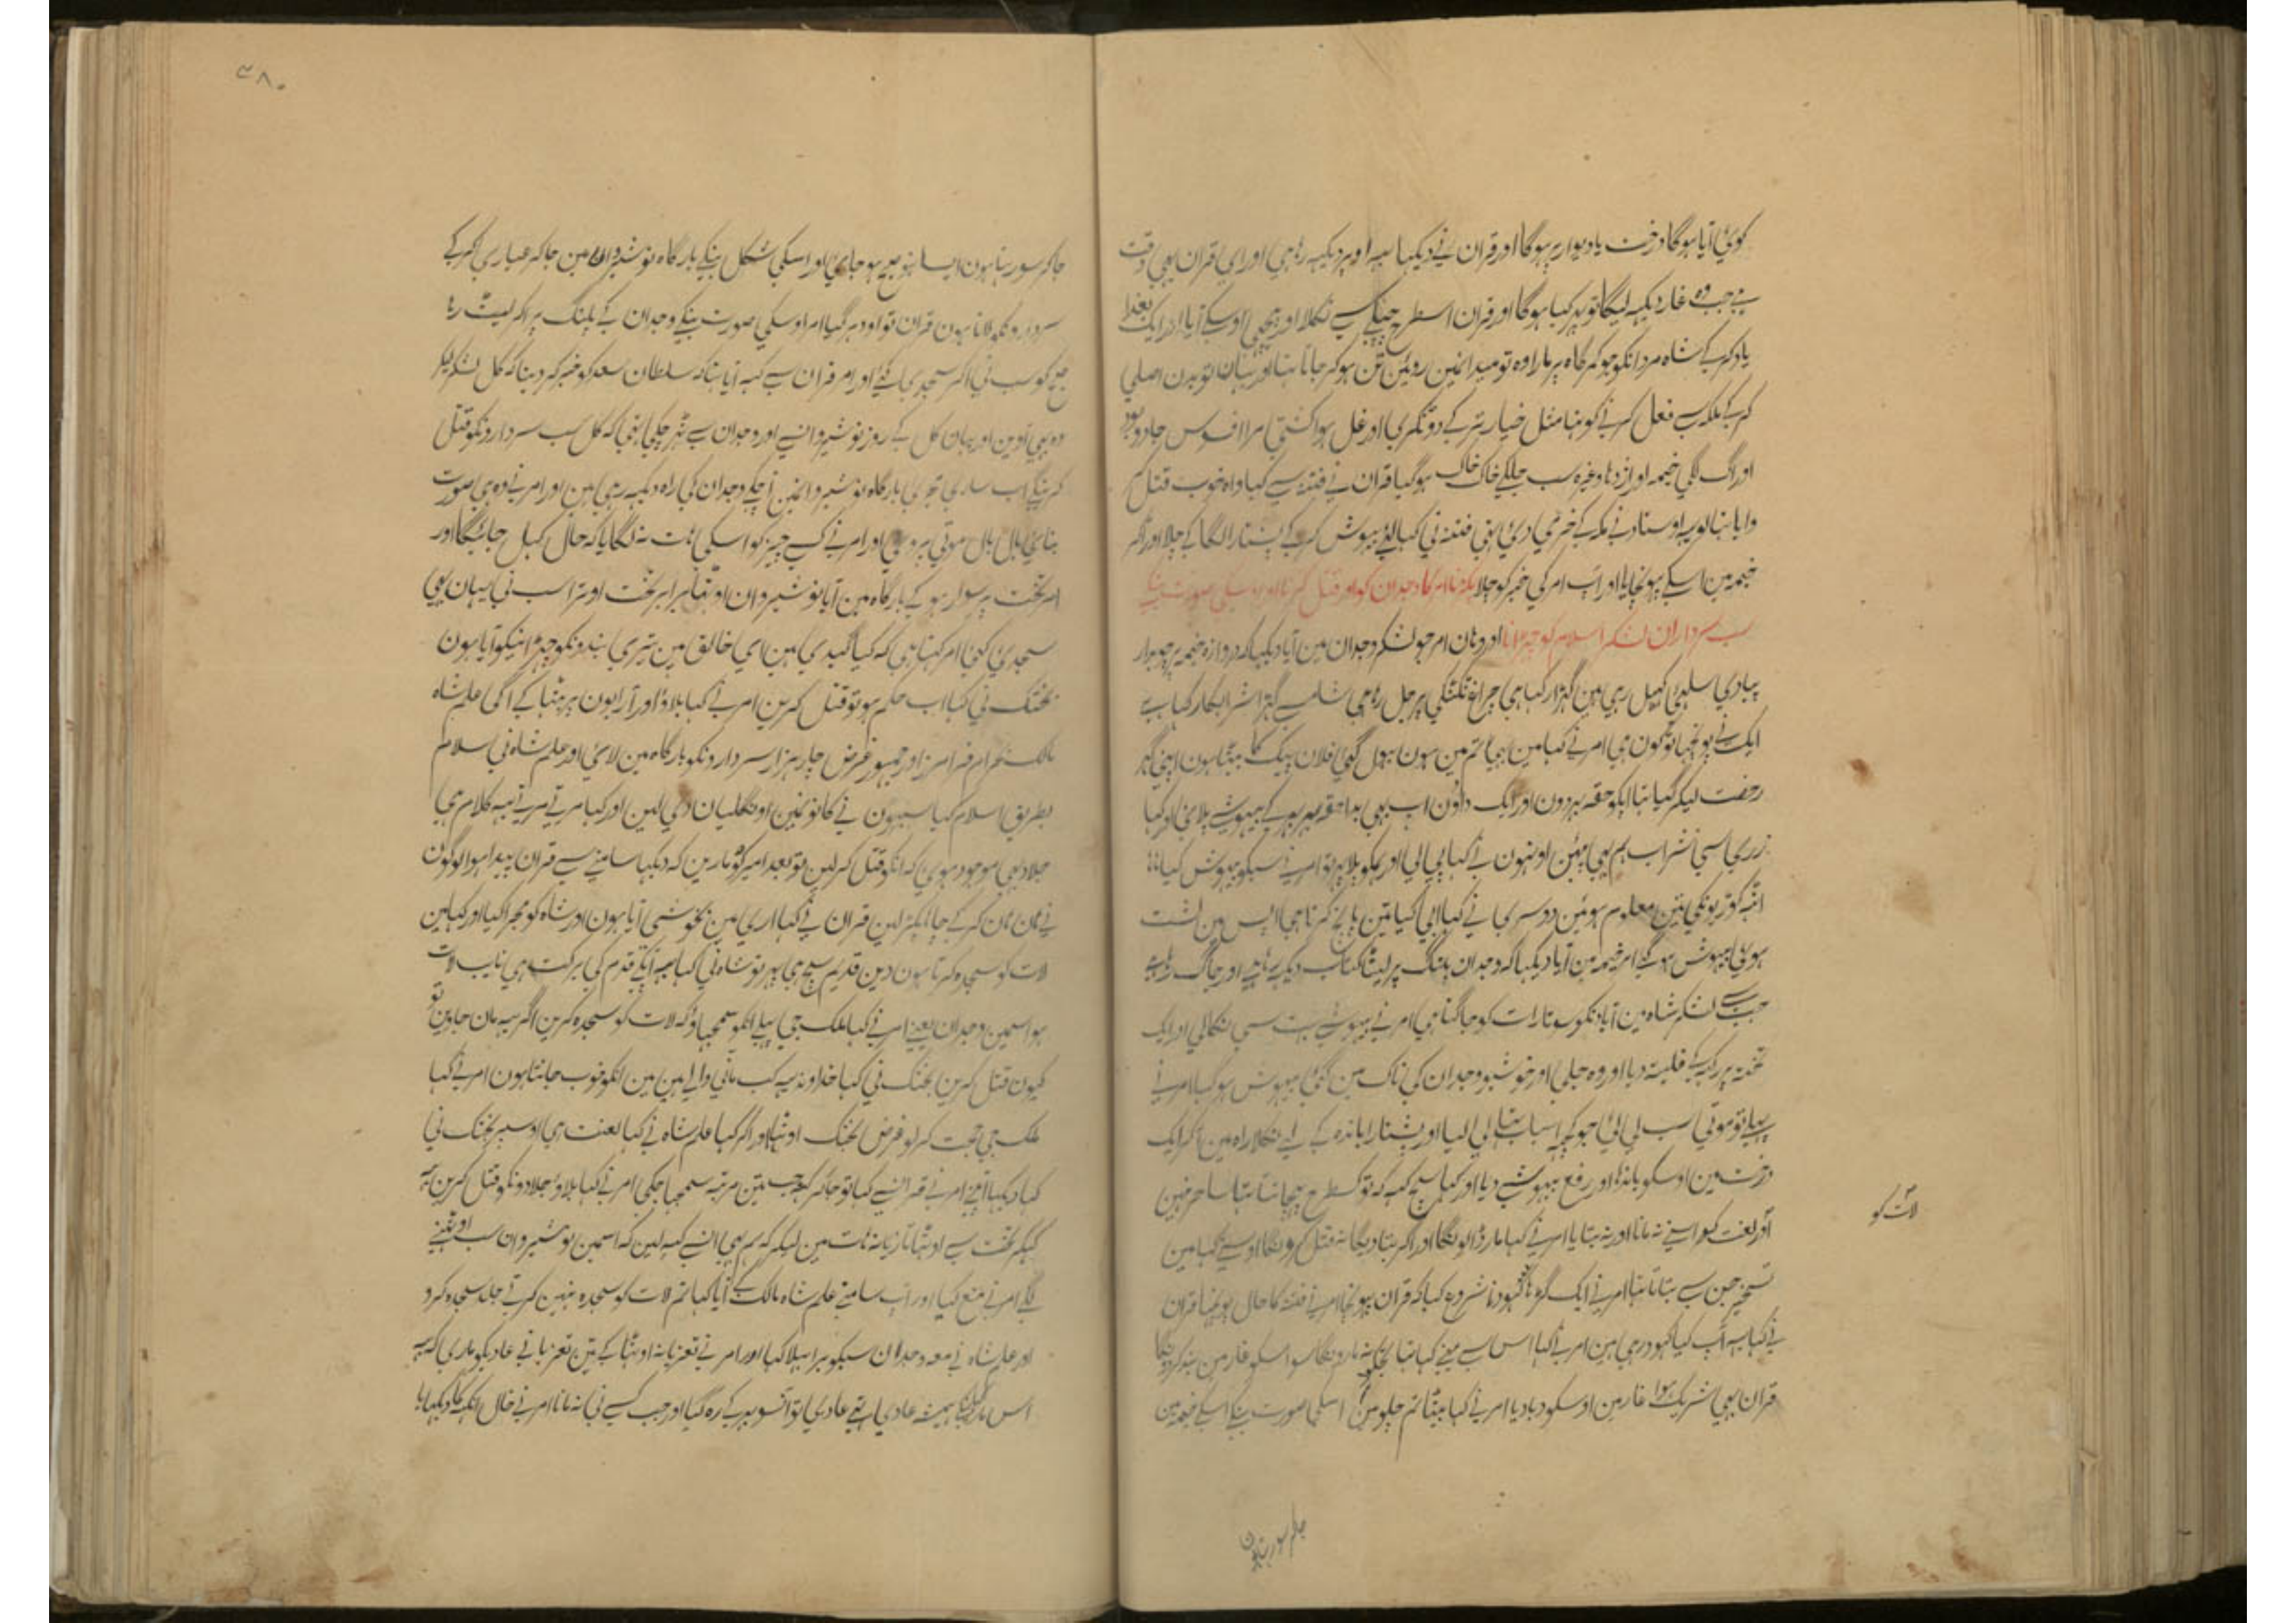 کوئی آیا ہوگا درخت یا دیوار پر ہوگا اور قران نے دیکہا یہہ اوپر دیکہہ رہا ہی اور ای قران یہی وقت
ہے جب وہ غار دیکہہ لیگا تو پہر کیا ہوگا اور قران اسطرح چپکے سے نکلا اور پیچہی اوسکے آیا اور ایک بغدا
یاد کر کے شاہ مردانکو جو کمرگاہ پر مارا وہ تو میدانمین روئین تن ہو کر جاتا تہا اور یہان تو بدن اصلی
کر کے ملکہ سے فعل کرنے کو تہا مثل خیار تر کے دو ٹکری اور غل ہوا کشتی مرا افسوس جادو بود
اور آگ لگی خیمہ اور اژدہا وغیرہ سب جلکے خاک خاک ہو گیا قران نے فتنہ سے کہا واہ خوب قتل
وایا تہا تو پہ اوستاد نے مکہ کے خبر ی دی تہی فتنہ نی کہا بیہوش کر کے پشتارا لگا کے چلا اور اگر
خیمہ مین اسکے پہونچایا اور اپ امر کی خبر کو چلا پکڑنا امر کا وجدان کو اور قتل کرنا اور اوسکی صورت بنکے
سب سرداران لشکر اسلام کو چہڑانا اور وہان امر جو لشکر وجدان مین آیا دیکہا کہ دروازہ خیمہ پر چوبدار
پیادی سلہی کہیل رہی ہین گہڑا رکہا ہی چراغ ٹکٹکی پر جل رہا ہی شامل سے گہڑا شراب کا رکہا ہے
ایک نے پوچہا تو کون ہی امر نے کہا مین ہی تم مین ہون بہول گئی فلان پیک کا بیٹا ہون اپنی گہر
رخصت لیکر گیا تہا اپکو حقہ بہر دون اور ایک داؤن اب یہی بدا حقہ بہر بہر کے بیہوشی پلائی اور کہا
زری سی شراب ہم یہی پیئن اونہون نے کہا پی لی اور ہمکو پلا پہر تو امر نے سبکو بیہوش کیا
انہہ کوڑیونکی تین معلوم ہوئین دوسری نے کہا ابی کیا تین پانچ کرتا ہی آپس مین لشت
ہوئی بیہوش ہو گئے امر خیمہ مین آیا دیکہا کہ وجدان پلنگ پر لیٹا کتاب دیکہہ رہا ہے اور جاگ رہا ہے
جب سے لشکر شاہ مین آیا دنکو سوتا رات کو جاگتا ہی امر نے بیہوشی بہت سی نکالی اور ایک
تختہ پر رکہہ کے فلیتہ دیا اور وہ جلی اور خوشبو وجدان کی ناک مین گئی بیہوش ہو گیا امر نے
پہلے تو موتی سب لی لئی جو کچہہ اسباب تہا لی لیا اور پشتارا باندہ کے لے نکلا راہ مین آکر ایک
درخت مین اوسکو باندہا اور رفع بیہوشی دیا اور کہا سچ کہہ کہ تو کسطرح پہچانتا تہا ساحر مین
لات کو
اور لغت کو اسنے نہ مانا اور نہ بتایا امر نے کہا مار ڈالونگا اور اگر بتا دیگا نہ قتل کرونگا اوسنے کہا مین
تسخیر جن سے بتاتا تہا امر نے ایک گڑہا کہودنا شروع کیا کہ قران پہونچا امر نے فتنہ کا حال پوچہا قران
نے کہا یہہ آپ کیا کہود رہی ہین امر نے کہا اس سے مینے کہا تہا تجکو نہ مارونگا سو اسکو غار مین بند کردونگا
قران یہی شریک ہوا غار مین اوسکو دبا دیا امر نے کہا بیٹا تم چلو مین اسکی صورت بنکے اسکے خیمہ مین
جاکر سو رہتا ہون
۳۸۰
جاکر سو رہتا ہون ایسا نہو صبح ہو جاوی اور اسکی شکل بنکے بارگاہ نوشیروان مین جاکر عیاری کر کے
سردارونکو لاتا ہون قران تو اودہر گیا امر اوسکی صورت بنکے وجدان کے پلنگ پر آکر لیٹ رہا
صبح کو سب نی اکر سجدی کئے اور امر قران سے کہہ آیا تہا کہ سلطان سعد کو خبر کر دینا کہ کل لشکر لیکر
وہ یہی آوین اور یہان کل کے روز نوشیروانسے اور وجدان سے ٹہر چکی تہی کہ کل سب سردارونکو قتل
کرینگے اب ساری تیاری بارگاہ نوشیروانمین آکے وجدان کی راہ دیکہہ رہی ہین اور امر نے وہ ہی صورت
بنائی بال بال موتی پروئی اور امر نے کسی چیز کو اسکی ہات نہ لگایا کہ حال کہل جائیگا اور
امر تخت پر سوار ہو کے بارگاہ مین آیا نوشیروان اوٹہا برابر تخت اوترا سب نی یہان یہی
سجدی کئی امر کہتا ہی کہ کیا گیدی ہین ای خالق مین تیری بندونکو چہڑانیکو آیا ہون
بختک نی کہا اب حکم ہو تو قتل کرین امر نے کہا بلاؤ اور آرابون پر بٹہا کے آگی علم شاہ
مالک بہرام فرامرز اور جمہور غرض چار ہزار سردارونکو بارگاہ مین لائی اور علم شاہ نی سلام
بطریق اسلام کیا سبہون نے کانو نمین اونگلیان دی لین اور کہا مرتے مرتے یہہ کلام ہی
جلاد یہی موجود ہوئی کہ انکو قتل کر لین تو بعد امیر کو مارین کہ دیکہا سامنے سے قران پیدا ہوا لوگون
نے ہان ہان کر کے چاہا پکڑ لین قران نے کہا اری مین بخوشی آیا ہون اور شاہ کو مجرا کیا اور کہا مین
لات کو سجدہ کرتا ہون دین قدیم سچ ہی پہر تو شاہ نی کہا یہہ آپکے قدم کی برکت ہی نایب لات
ہوا سمین وجدان یعنے امر نے کہا ملک جی پہلے انکو سمجہاؤ کہ لات کو سجدہ کرین اگر یہہ مان جاوین تو
کیون قتل کرین بختک نی کہا خداوند یہہ کب ماننی والے ہین مین انکو خوب جانتا ہون امر نے کہا
ملک جی حجت کر لو غرض بختک اوٹہا اور اکر کہا علم شاہ نے کہا لعنت ہی اوسپر بختک نی
کہا دیکہا آپنے امر نے قرانسے کہا تو جا کر کہہ جب تین مرتبہ سمجہا چکی امر نے کہا بلاؤ جلادونکو قتل کرین یہہ
کہکر تخت سے اوٹہا تازیانہ ہات مین لیکر کہ ہم یہی انسے کہہ لین کہ اسمین نوشیروان سب اوٹہنے
لگے امر نے منع کیا اور اپ سامنے علم شاہ مالک کے آیا کہا تم لات کو سجدہ نہین کرتے جلد سجدہ کرو
اور علم شاہ نے معہ وجدان سبکو برا بہلا کہا اور امر نے تعزیانہ اوٹہا کے تین تعزیانے عادیکو ماری کہ یہہ
اس مار کہانیکا ہمیشہ عادی ہے عادی تو آنسو بہر کے رہ گیا اور جب کسی نی نہ مانا امر نے خال آنکہہ کا دیکہایا